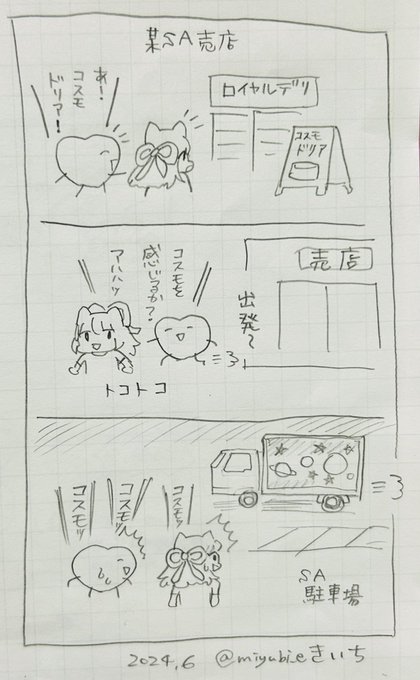 某SA売店
あ!
コスモ
ドリア!
ロイヤルデリ
コスモ
ドリア
コスモを
感じるか?
アハハッ
トコトコ
売店
出発~
コスモッ
コスモッ
コスモッ
SA
駐車場
2024.6 @miyubi_eきいち